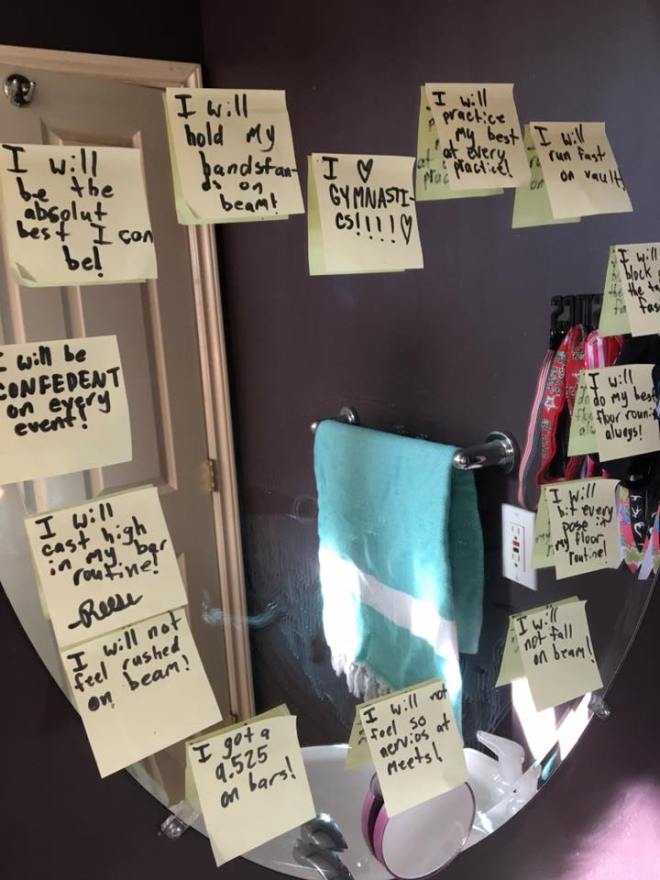 I will
be the
absolut
best I can
be!
I will
hold My
handstan-
ds on
beam!
I ♡
GYMNASTI-
CS!!!!♡
I will
practice
my best
at every
practice!
I will
run fast
on vault!
I will
block
the ta
fas
I will be
CONFEDENT
on every
event!
I will
do my best
floor routin
always!
I will
cast high
in my bar
routine!
Reese
I will
hit every
pose in
my floor
routine!
I will not
feel rushed
on beam!
I will
not fall
on beam!
I got a
9.525
on bars!
I will not
feel so
nervios at
Meets!